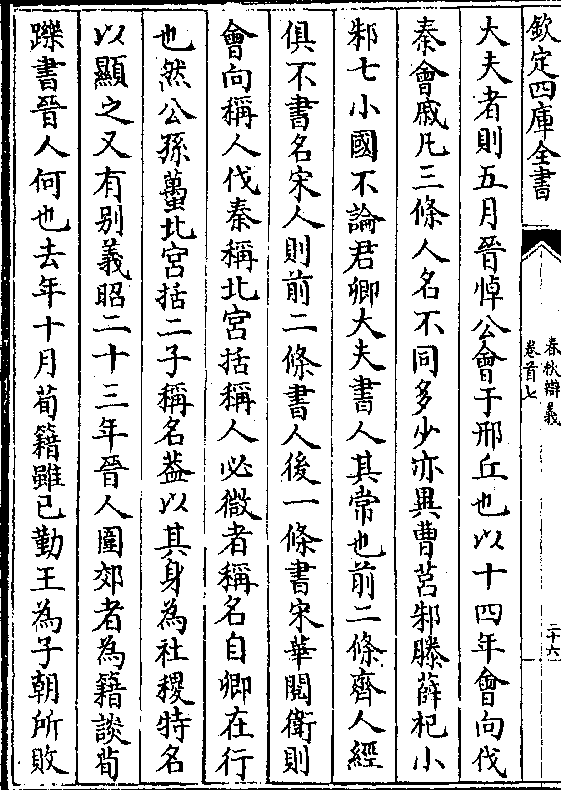 欽定四庫全書
春秋辯義
卷首七
二十六
大夫者則五月晉悼公會于邢丘也以十四年會向伐
秦會戚凡三條人名不同多少亦異曹莒邾滕薛杞小
邾七小國不論君卿大夫書人其常也前二條齊人經
俱不書名宋人則前二條書人後一條書宋華閱衛則
會向稱人伐秦稱北宮括稱人必微者稱名自卿在行
也然公孫蠆北宮括二子稱名葢以其身為社稷特名
以顯之又有別義昭二十三年晉人圍郊者為籍談荀
躒書晉人何也去年十月荀籍雖已勤王為子朝所敗